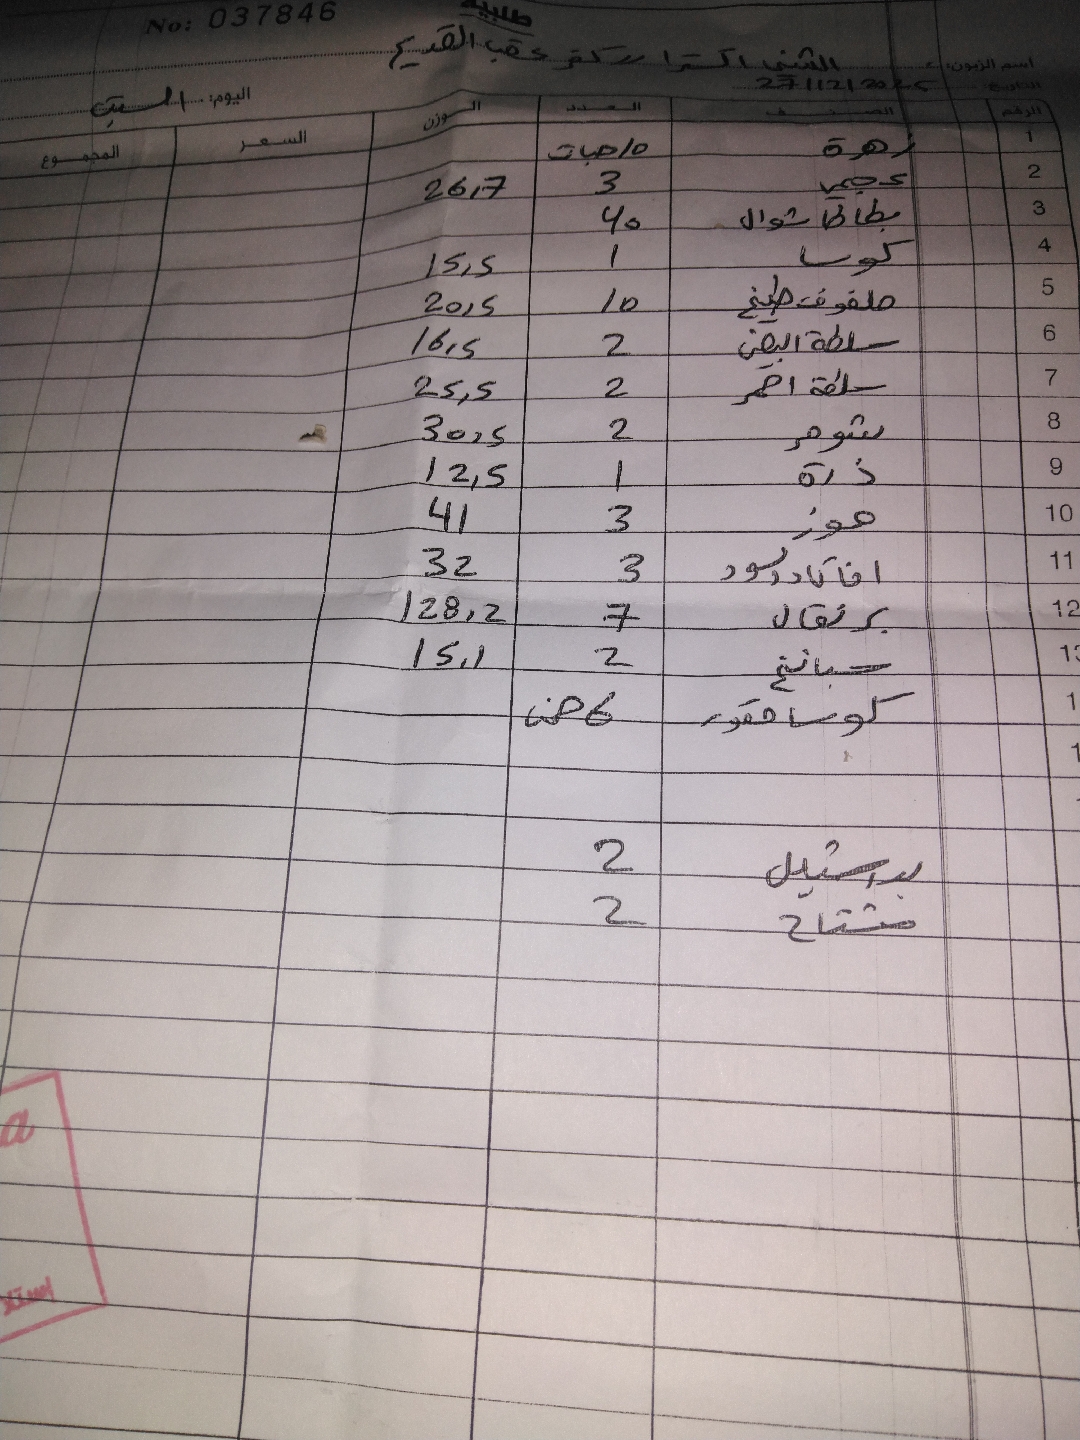 طلبية
No: 037846
اسم الزبون: الشني اكسترا ماركت عقب القديم
التاريخ: 27/12/2025
اليوم: السبت
الرقم الصنف العدد الوزن السعر المجموع
1 زهرة 10 حبات
2 عجمي 3 26,7
3 بطاطا شوال 40
4 كوسا 1 15,5
5 ملفوف طبيخ 10 20,5
6 سلطة ابيض 2 16,5
7 سلطة احمر 2 25,5
8 شومر 2 30,5
9 ذرة 1 12,5
10 موز 3 41
11 افاكادو اسود 3 32
12 برتقال 7 128,2
13 سبانخ 2 15,1
1 كوسا محقور 6 صحن
1
2
مشتاح 2
a